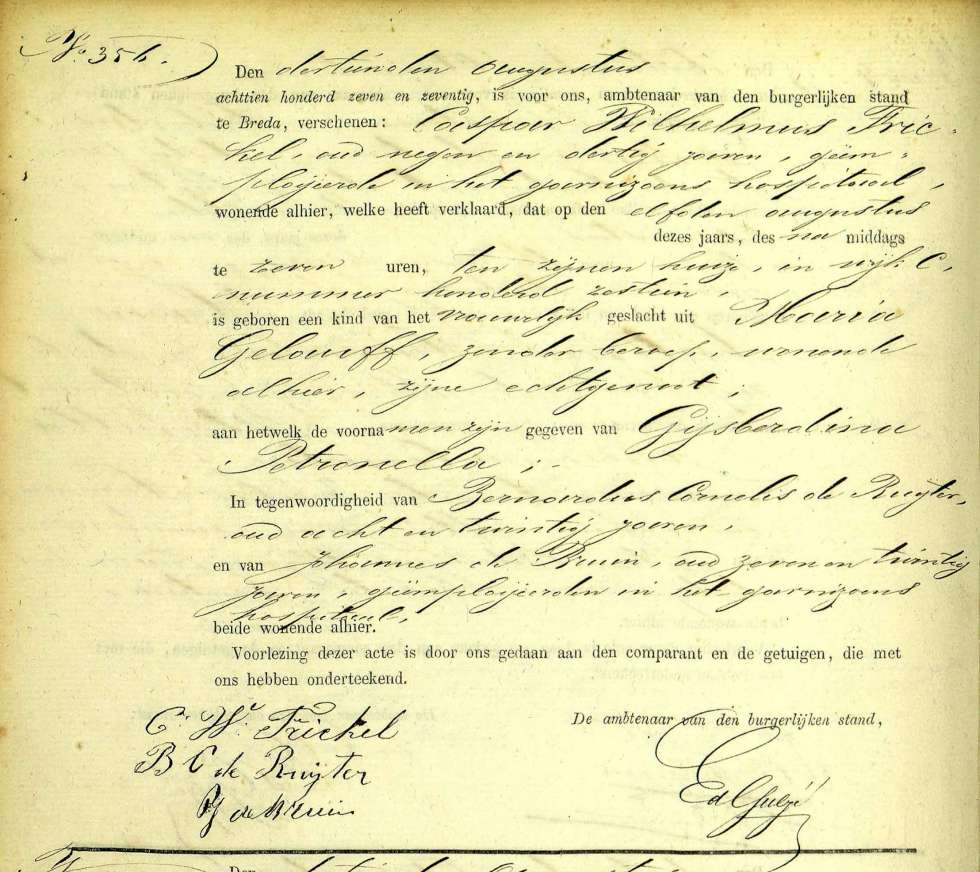 No. 356.
Den dertienden Augustus
achttien honderd zeven en zeventig, is voor ons, ambtenaar van den burgerlijken stand
te Breda, verschenen: Caspar Wilhelmus Fric-
kel, oud negen en dertig jaren, geëm-
ployeerde in het garnizoens hospitaal,
wonende alhier, welke heeft verklaard, dat op den elfden augustus
dezes jaars, des na middags
te zeven uren, ten zijnen huize, in wijk C,
nummer honderd zestien,
is geboren een kind van het vrouwelijk geslacht uit Maria
Gelouff, zonder beroep, wonende
alhier, zijne echtgenoot,
aan hetwelk de voornamen zijn gegeven van Gijsberdina
Petronella;
In tegenwoordigheid van Bernardus Cornelis de Ruyter,
oud acht en twintig jaren,
en van Johannes de Bruin, oud zeven en twintig
jaren, geëmployeerden in het garnizoens
hospitaal,
beide wonende alhier.
Voorlezing dezer acte is door ons gedaan aan den comparant en de getuigen, die met
ons hebben onderteekend.
De ambtenaar van den burgerlijken stand,
C. W. Frickel
B C de Ruyter
J de Bruin
Den dertienden